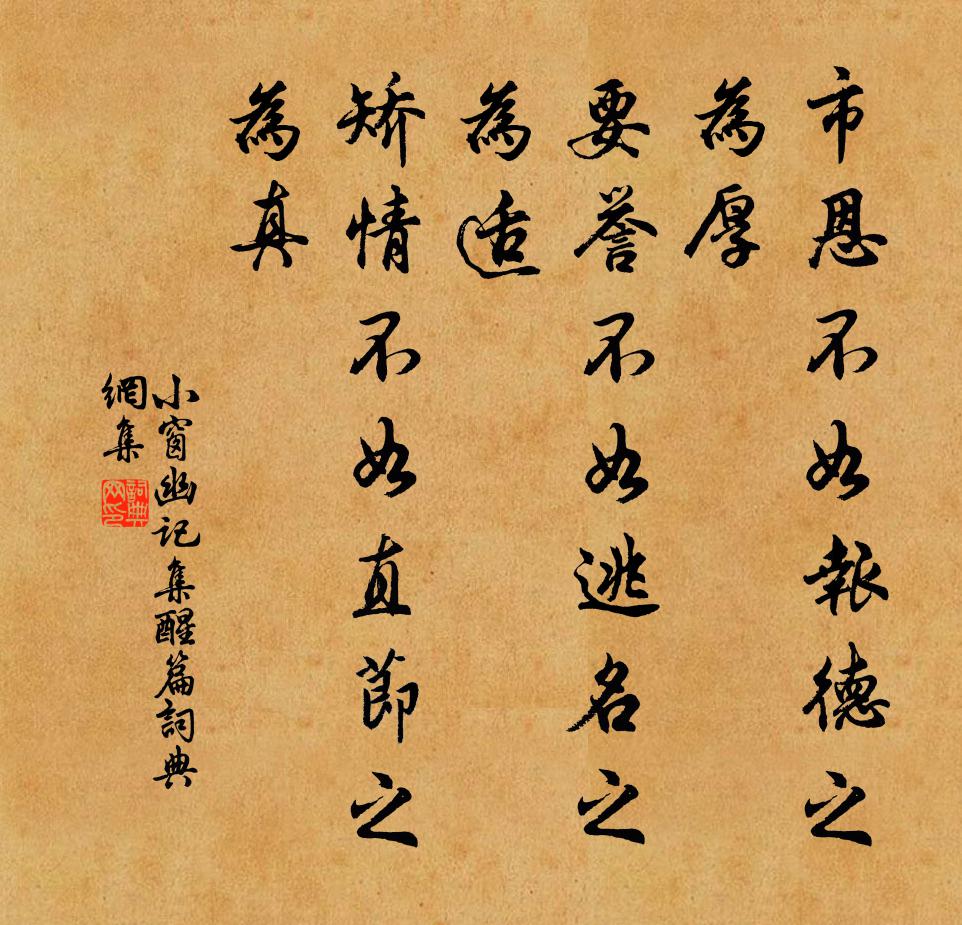 市恩不如報德之
為厚
要譽不如逃名之
為適
矯情不如直節之
為真
小窗幽记集醒篇詞典
網集
詞典
网印